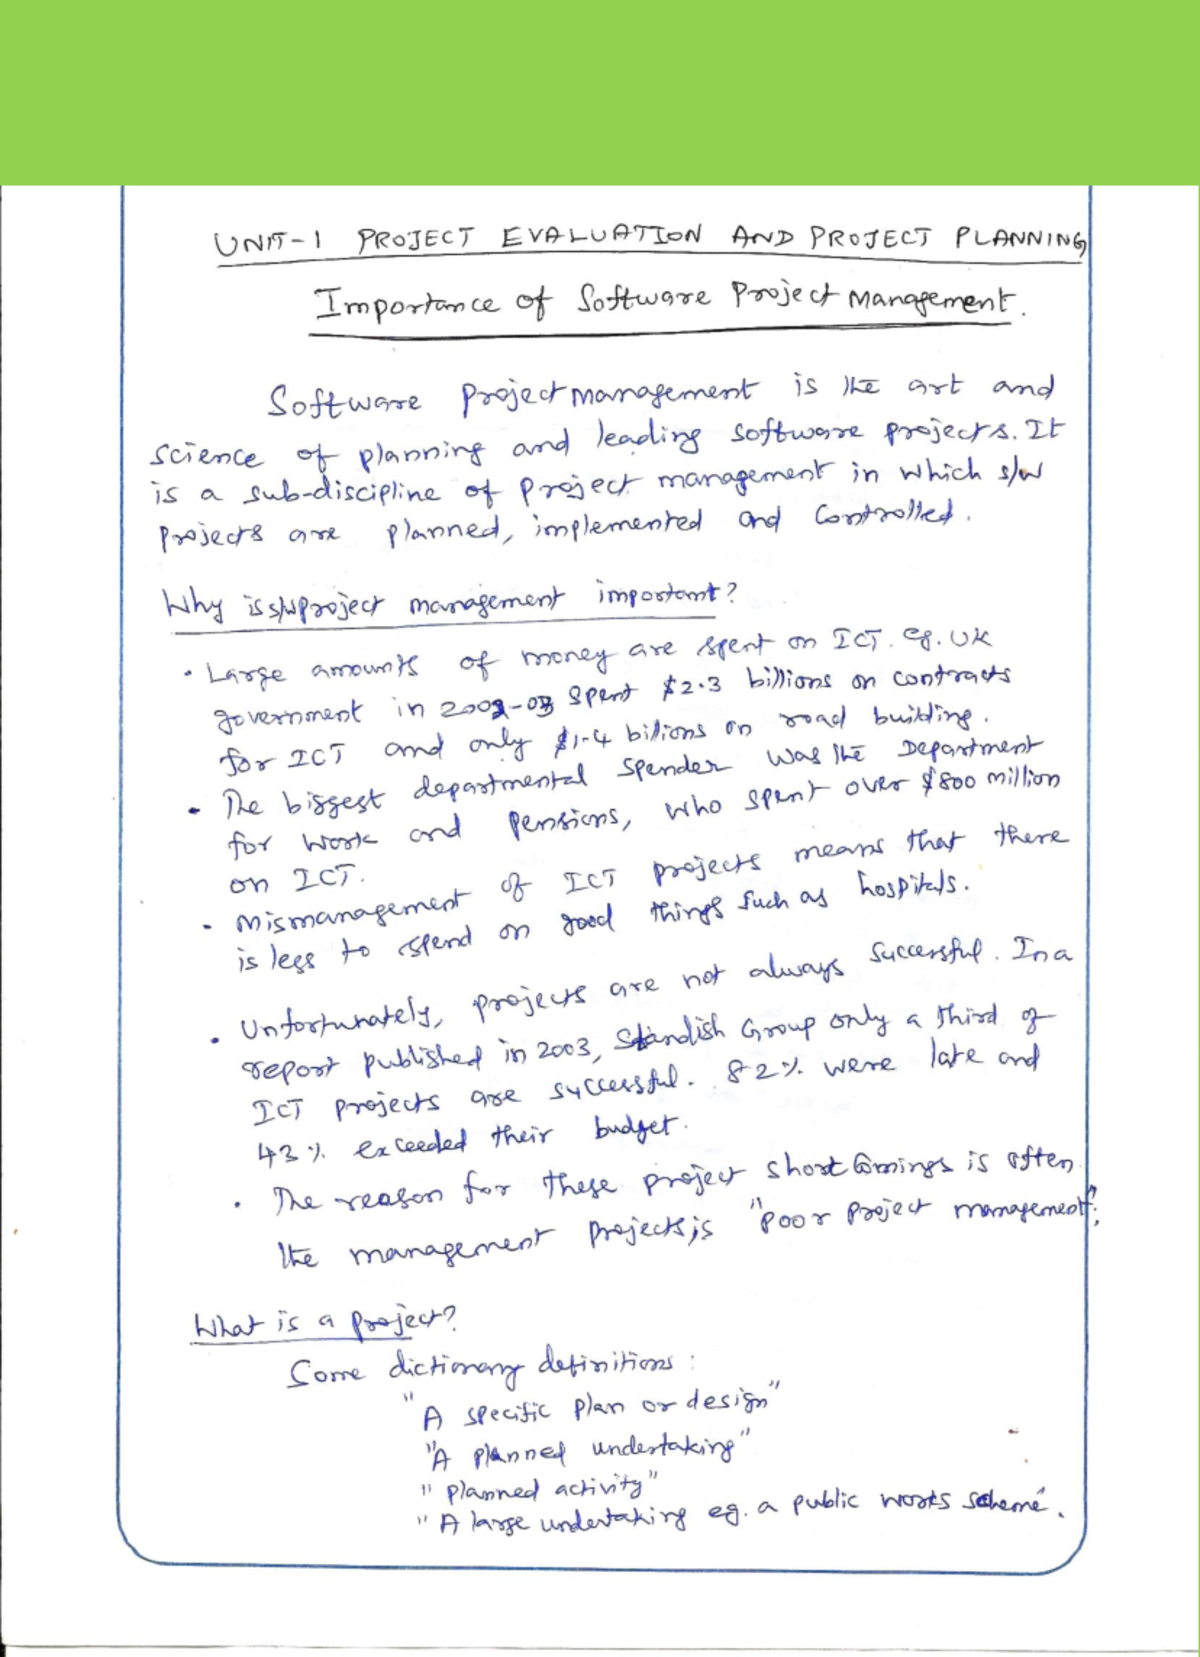 UNIT-1 PROJECT EVALUATION AND PROJECT PLANNING
Importance of Software Project Management.
Software project management is the art and
science of planning and leading software projects. It
is a sub-discipline of project management in which s/w
projects are planned, implemented and controlled.
Why is s/w project management important?
• Large amounts of money are spent on ICT. eg. UK
government in 2002-03 spent $2.3 billions on contracts
for ICT and only $1.4 bilions on road building.
• The biggest departmental spender was the Department
for work and pensions, who spent over $800 million
on ICT.
• Mismanagement of ICT projects means that there
is less to spend on good things such as hospitals.
• Unfortunately, projects are not always successful. In a
report published in 2003, Standish Group only a third of
ICT projects are successful. 82% were late and
43% exceeded their budget.
• The reason for these project shortcomings is often
the management projects, is "poor project management".
What is a project?
Some dictionary definitions:
"A specific plan or design"
"A planned undertaking"
"planned activity"
"A large undertaking eg. a public works scheme".